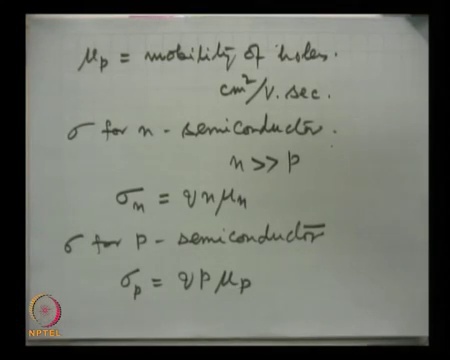 μp = mobility of holes.
cm²/V.sec.
σ for n - semiconductor.
n >> p
σn = q n μn
σ for p - semiconductor
σp = q p μp
NPTEL